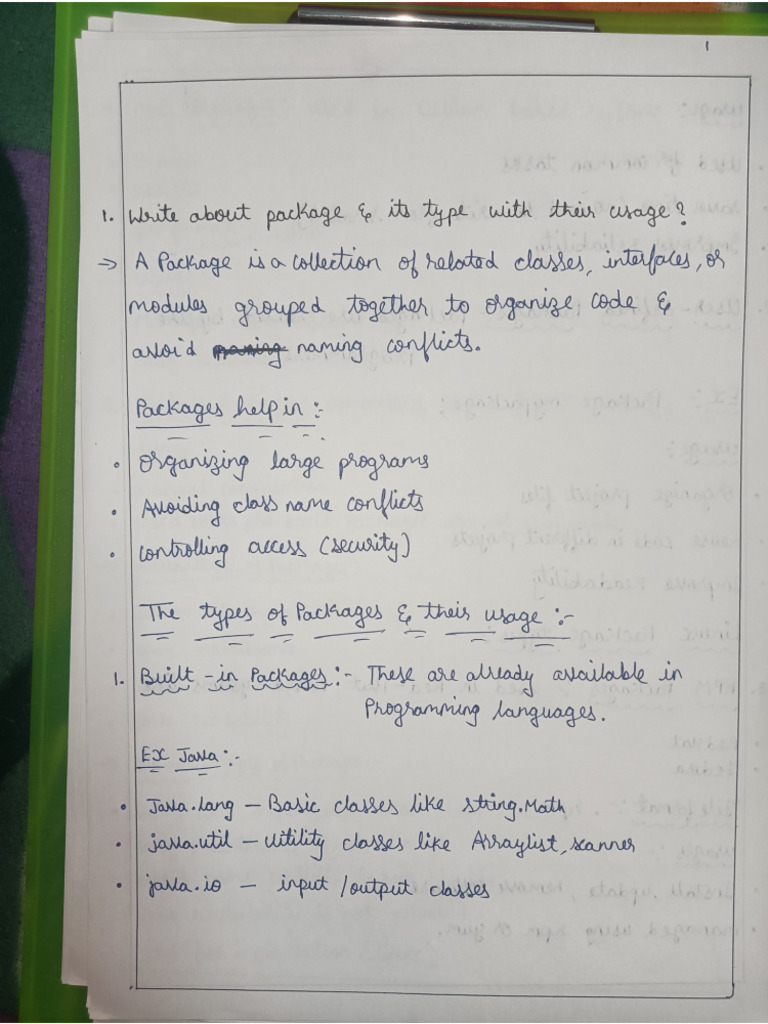 1
1. Write about package & its type with their usage?
→ A Package is a collection of related classes, interfaces, or
modules grouped together to organize code &
avoid naming conflicts.
Packages help in :-
• Organizing large programs
• Avoiding class name conflicts
• controlling access (security)
The types of Packages & their usage :-
1. Built-in Packages :- These are already available in
Programming languages.
Ex Java :-
• Java.lang – Basic classes like string.Math
• java.util – Utility classes like Arraylist, scanner
• java.io – input /output classes